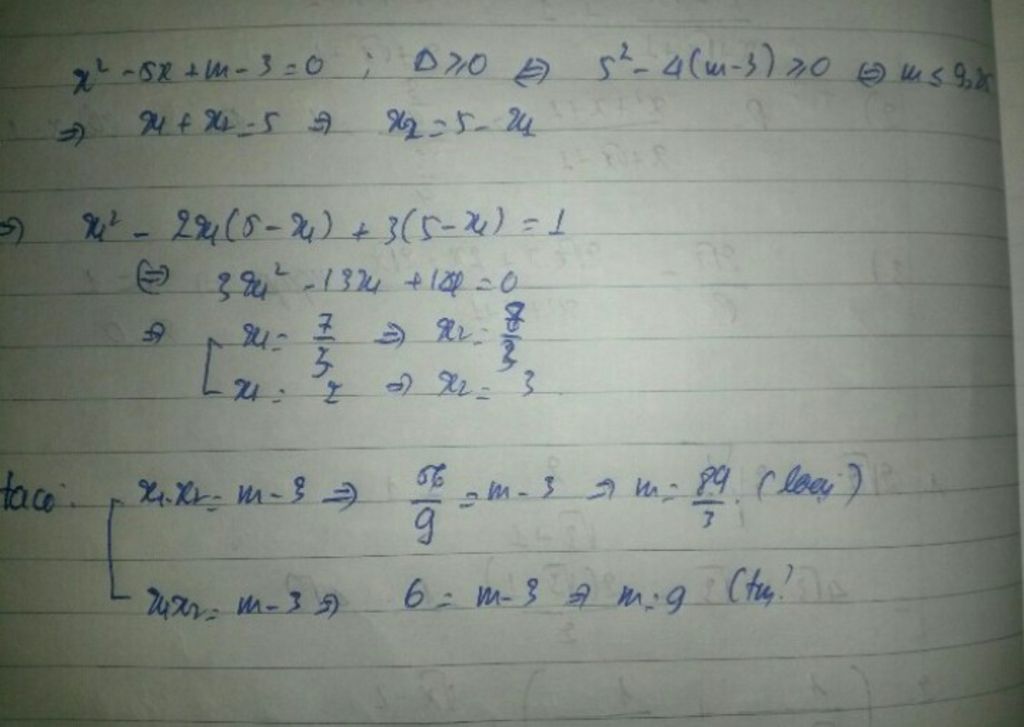 x² - 5x + m - 3 = 0 ; Δ ≥ 0 ⇔ 5² - 4(m-3) ≥ 0 ⇔ m ≤ 9,25
⇒ x₁ + x₂ = 5 ⇒ x₂ = 5 - x₁
⇒ x₁² - 2x₁(5-x₁) + 3(5-x₁) = 1
⇔ 3x₁² - 13x₁ + 14 = 0
⇒ [ x₁ = 7/3 ⇒ x₂ = 8/3
x₁ = 2 ⇒ x₂ = 3
ta có: [ x₁.x₂ = m - 3 ⇒ 56/9 = m - 3 ⇒ m = 89/3 (loại)
x₁x₂ = m - 3 ⇒ 6 = m - 3 ⇒ m = 9 (tm)